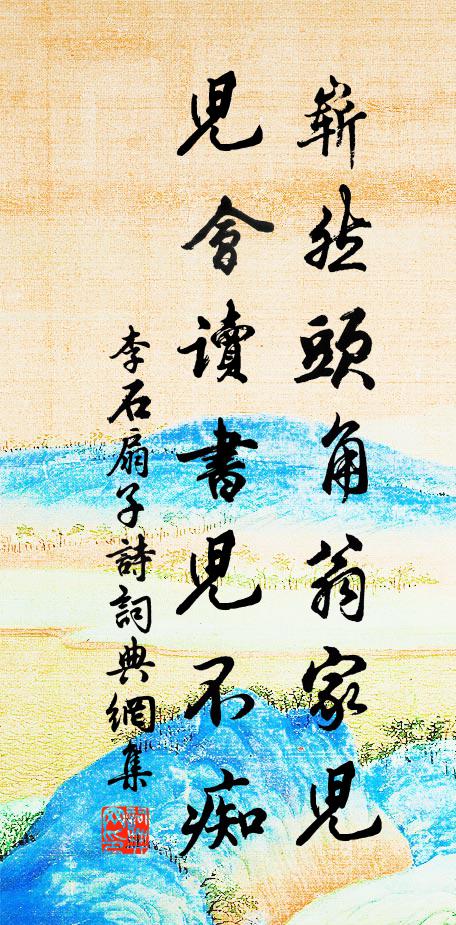 嶄然頭角翁家児
児會讀書児不痴
李石扇子詩詞典網集